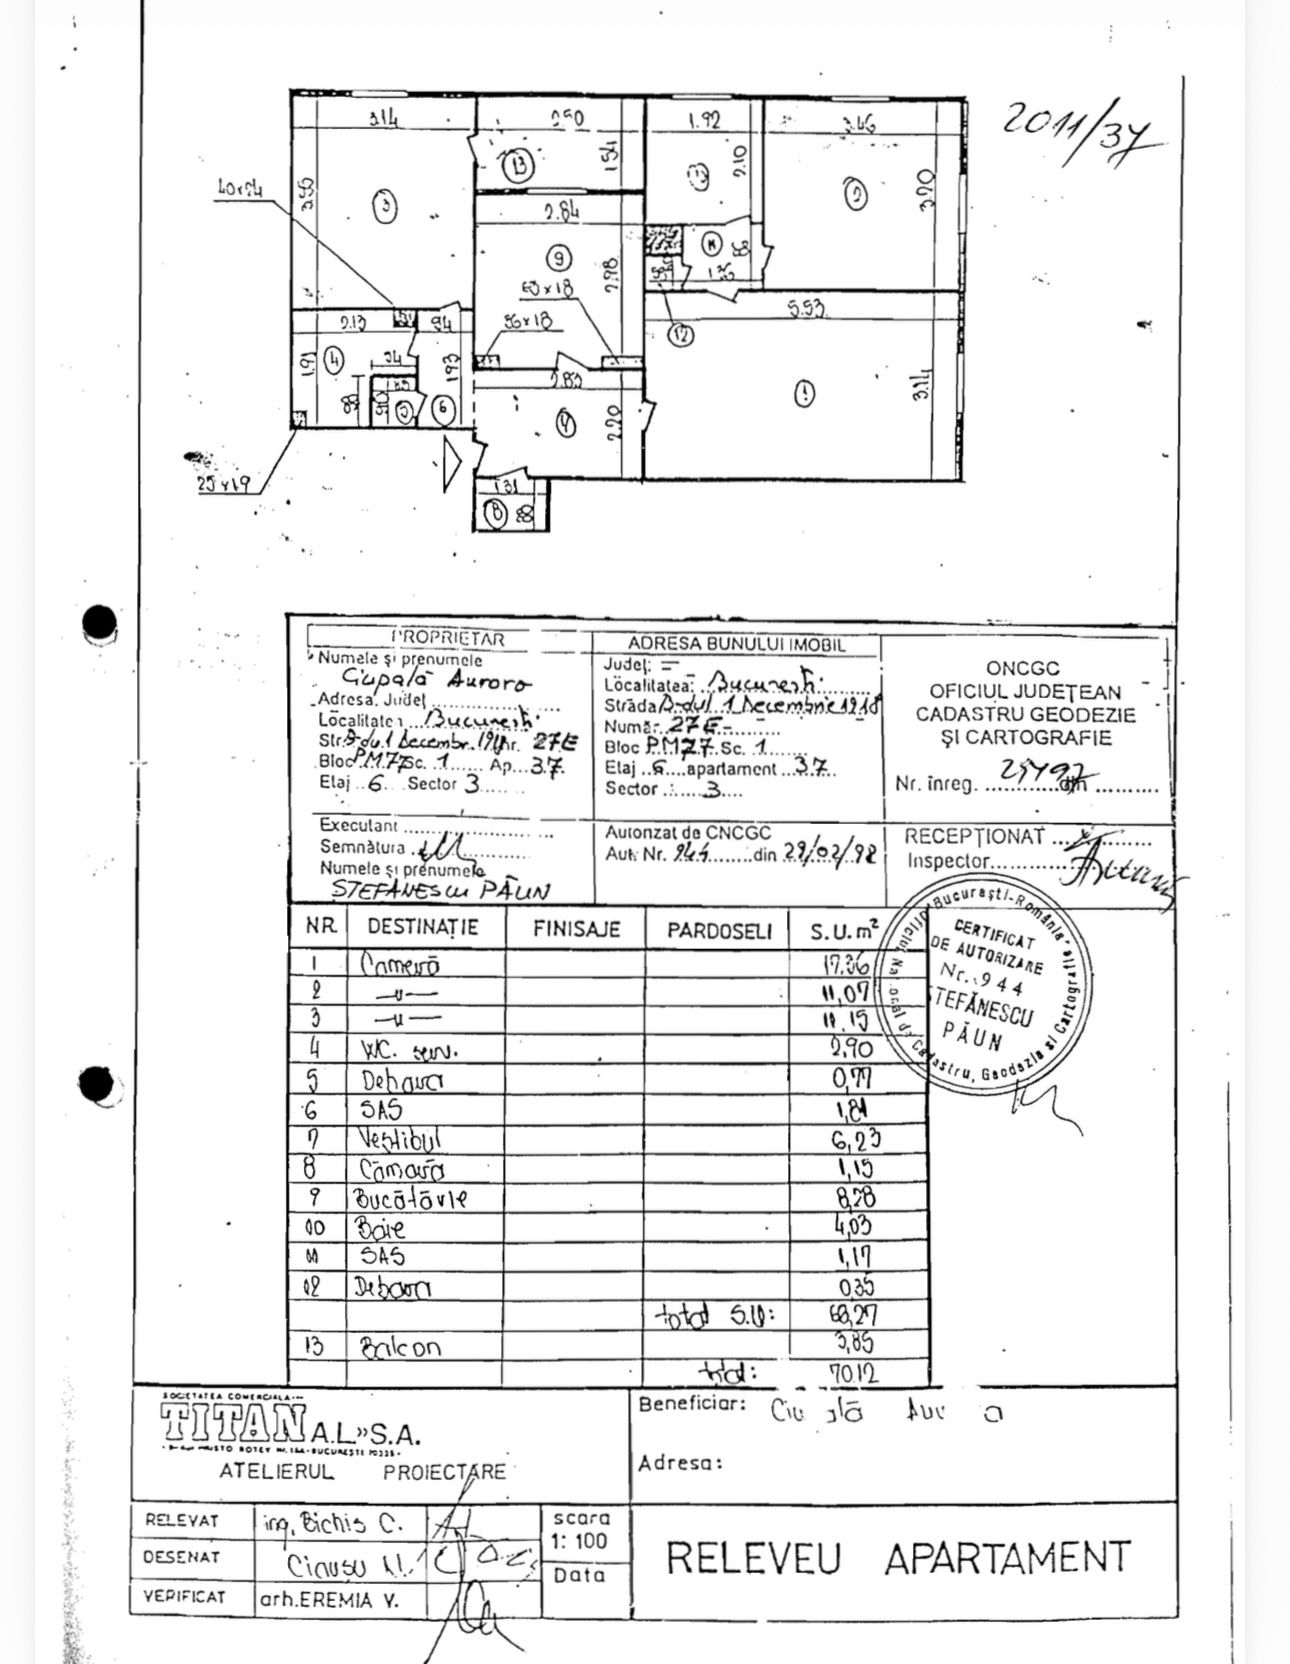 2011/37
3.14
2.50
1.92
3.46
1.54
2.10
3.20
3.55
40x24
13
3
2
2.84
9
2.98
63x18
56x18
5.53
12
2.13
94
4
1.91
1.93
6
2.83
2.20
1
3.14
25x19
1.31
8
88
PROPRIETAR
Numele și prenumele
Ciupală Aurora
Adresa. Județ
Localitatea București
Str. B-dul 1 Decembr. 1918 nr. 27E
Bloc PM77 Sc. 1 Ap. 37
Etaj 6 Sector 3
Executant
Semnătura
Numele și prenumele
ȘTEFĂNESCU PĂUN
ADRESA BUNULUI IMOBIL
Județ: —
Localitatea: București
Strada B-dul 1 Decembrie 1918
Număr 27E
Bloc PM77 Sc. 1
Etaj 6 apartament 37
Sector 3
Autorizat de CNCGC
Aut. Nr. 944 din 29/02/92
ONCGC
OFICIUL JUDEȚEAN
CADASTRU GEODEZIE
ȘI CARTOGRAFIE
Nr. înreg. din
RECEPȚIONAT
Inspector
NR. DESTINAȚIE FINISAJE PARDOSELI S.U. m²
1 Cameră 17.36
2 —"— 11,07
3 —"— 11,15
4 WC. serv. 2,90
5 Debara 0,77
6 SAS 1,81
7 Vestibul 6,23
8 Cămară 1,15
9 Bucătărie 8,28
10 Baie 4,03
11 SAS 1,17
12 Debara 0,35
total S.U: 66,27
13 Balcon 3,85
total: 70.12
Oficiul Național de Cadastru, Geodezie și Cartografie București-România
CERTIFICAT
DE AUTORIZARE
Nr. 944
ȘTEFĂNESCU
PĂUN
SOCIETATEA COMERCIALA
TITAN A.L» S.A.
ATELIERUL PROIECTARE
Beneficiar: Ciu lă Au a
Adresa:
RELEVAT ing. Bichis C.
DESENAT
VERIFICAT arh. EREMIA V.
scara
1:100
Data
RELEVEU APARTAMENT